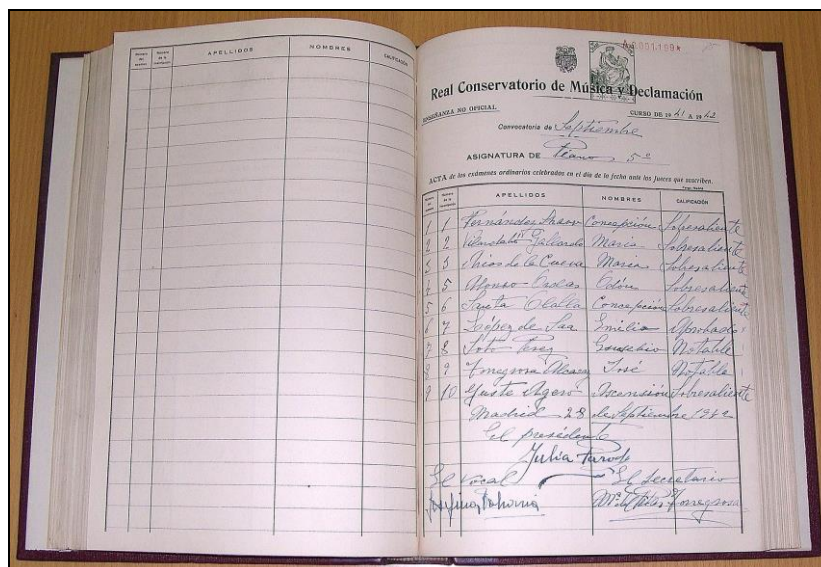 APELLIDOS NOMBRES CALIFICACIÓN
Real Conservatorio de Música y Declamación
ENSEÑANZA NO OFICIAL
CURSO DE 1941 A 1942
Convocatoria de Septiembre
ASIGNATURA DE Piano, 5º
ACTA de los exámenes ordinarios celebrados en el día de la fecha ante los Jueces que suscriben.
APELLIDOS NOMBRES CALIFICACIÓN
1 1 Fernández Concepción Sobresaliente
2 2 Galiardo María Sobresaliente
3 3 Ríos de la Cueva María Sobresaliente
4 5 Alonso Odón Sobresaliente
5 6 Santa Olalla Concepción Sobresaliente
6 7 López de Saa Emilio Aprobado
7 8 Soto Pérez Eusebio Notable
8 9 José Notable
9 10 Yuste Agero Ascensión Sobresaliente
Madrid 28 de Septiembre 1942
El presidente
Julia Parody
El Vocal El Secretario